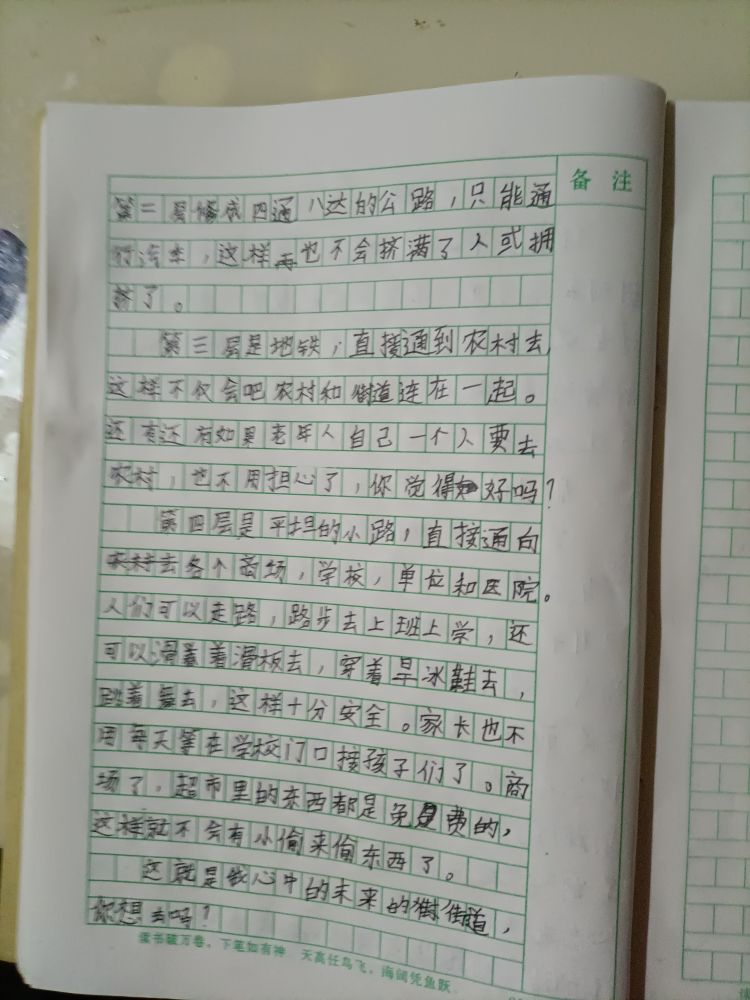 备 注
第二层修成四通八达的公路，只能通
行汽车，这样也不会挤满了人或拥
挤了。
第三层是地铁，直接通到农村去，
这样不仅会吧农村和街道连在一起。
还有还有如果老年人自己一个人要去
农村，也不用担心了，你觉得好吗？
第四层是平坦的小路，直接通向
农村去各个商场，学校，单位和医院。
人们可以走路，路步去上班上学，还
可以滑着滑板去，穿着旱冰鞋去，
跳着舞去，这样十分安全。家长也不
用每天等在学校门口接孩子们了。商
场了，超市里的东西都是免费的，
这样就不会有小偷来偷东西了。
这就是我心中的未来的街道，
你想去吗？
读书破万卷，下笔如有神 天高任鸟飞，海阔凭鱼跃